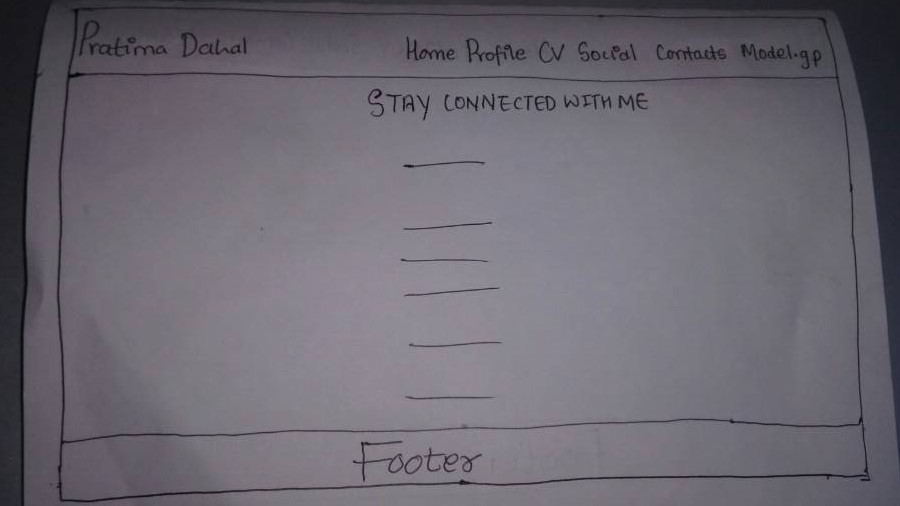 Pratima Dahal Home Profile CV Social Contacts Model.gp
STAY CONNECTED WITH ME
Footer